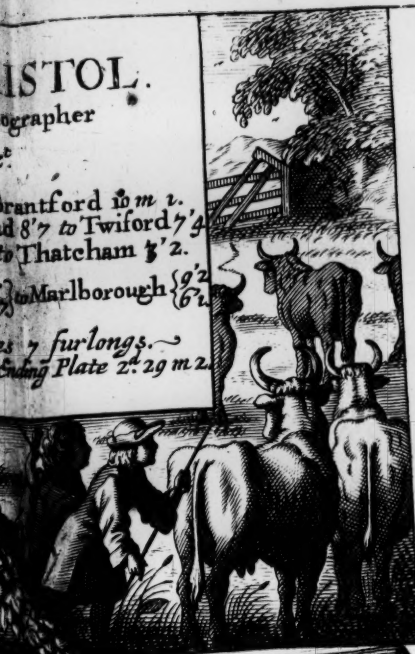 ISTOL.
ographer
rantford 10 m 1.
d 8'7 to Twiford 7'4
to Thatcham 3'2.
to Marlborough {9'2
6'1.
es 7 furlongs.
Ending Plate 2.d 29 m 2